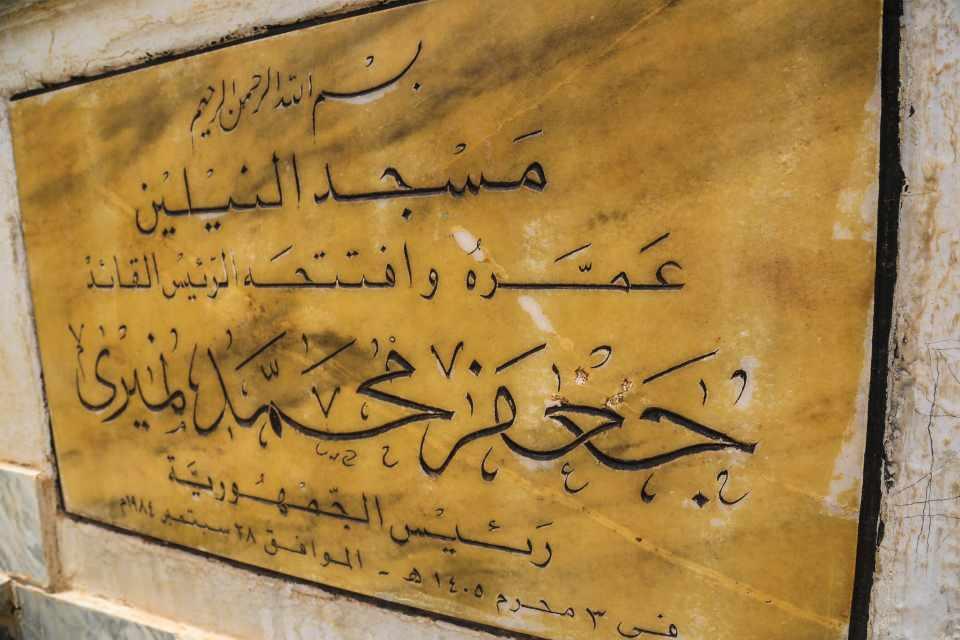 بسم الله الرحمن الرحيم
مسجد النيلين
عَمَّرهُ وافتتحَه الرّئيس القائدْ
جعفر محمد نميرى
رَئيس الجّمْهُوريَّة
فى ٣ محرم ١٤٠٥ هـ - الموافق ٢٨ سبتمبر ١٩٨٤م